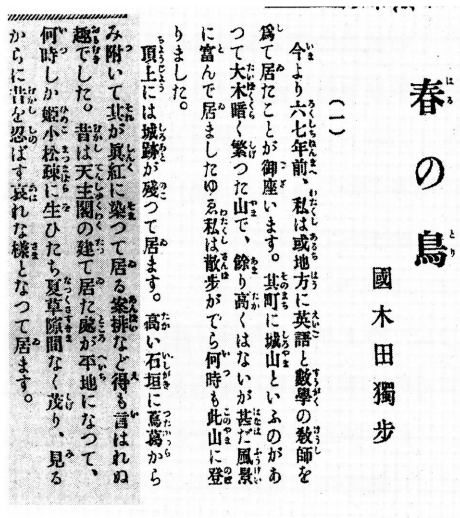 春の鳥
國木田獨步
(一)
今より六七年前、私は或地方に英語と數學の教師を
爲て居たことが御座います。其町に城山といふのがあ
つて大木暗く繁つた山で、餘り高くはないが甚だ風景
に富んで居ましたゆゑ私は散歩がてら何時も此山に登
りました。
頂上には城跡が殘つて居ます。高い石垣に蔦葛から
み附いて其が眞紅に染つて居る案排など得も言はれぬ
趣でした。昔は天主閣の建て居た處が平地になつて、
何時しか姬小松疎に生ひたち夏草隙間なく茂り、見る
からに昔を忍ばす哀れな樣となつて居ます。